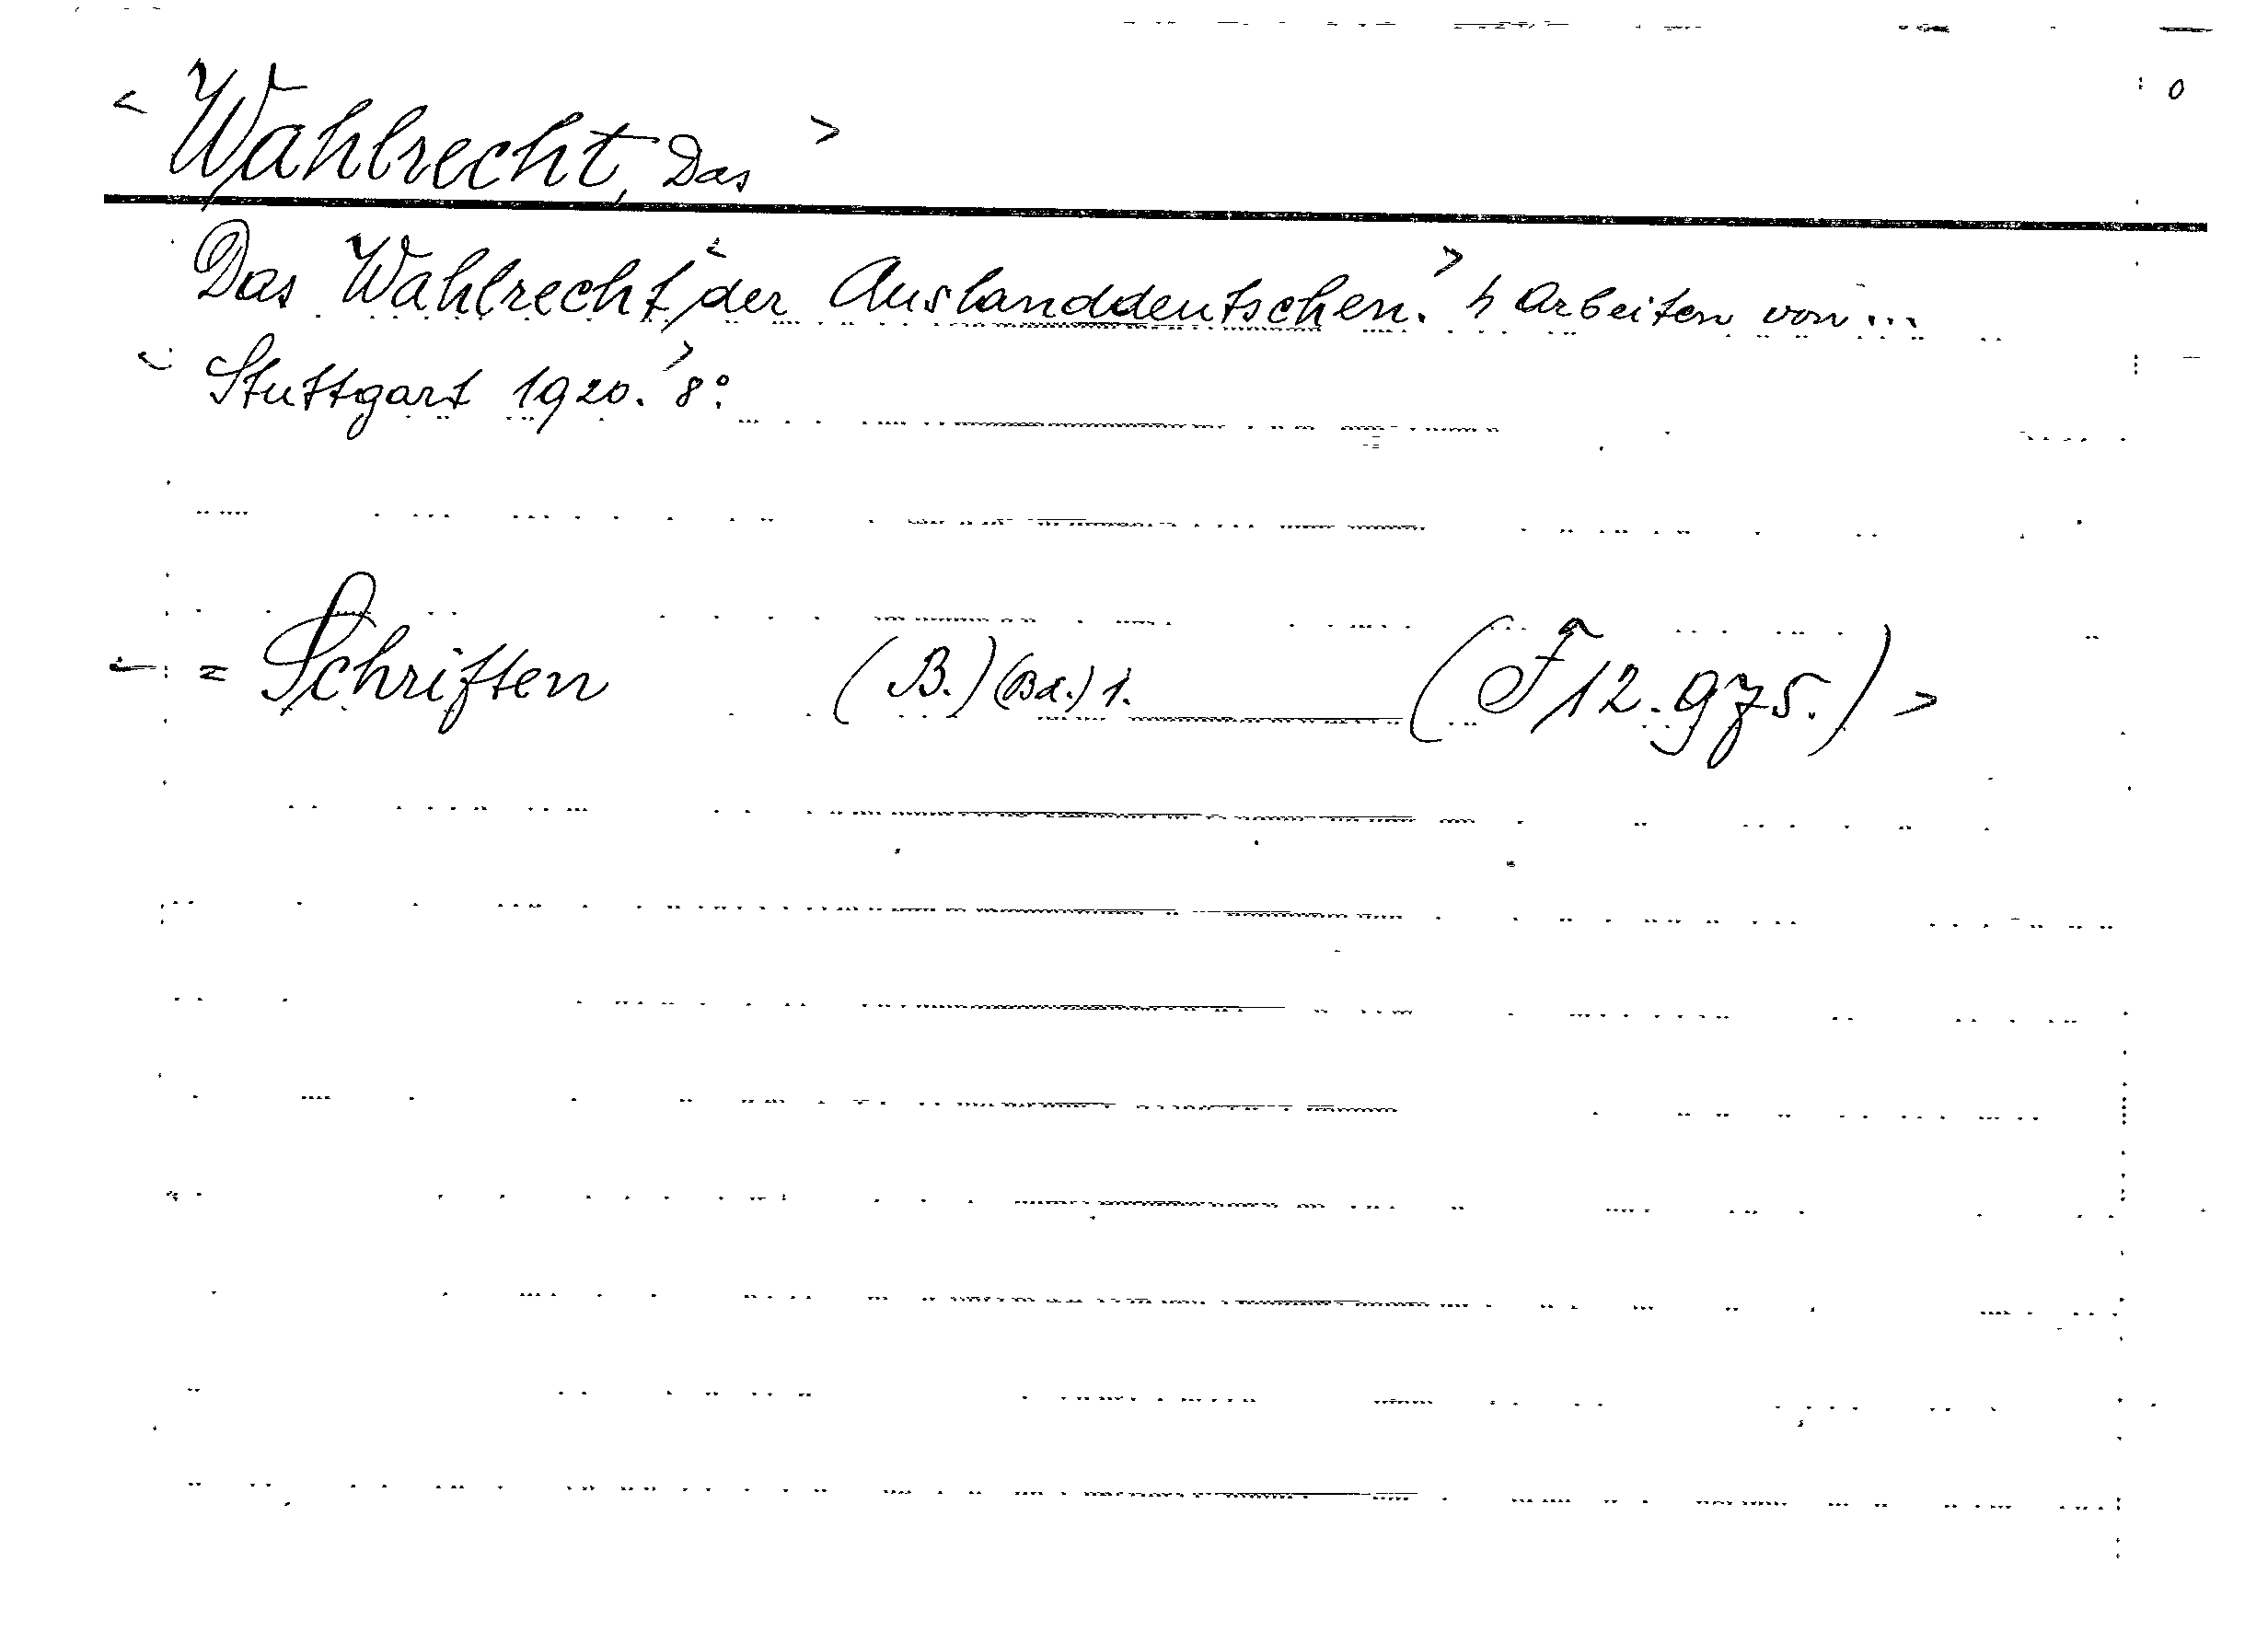 < Wahlrecht, Das > 0
Das Wahlrecht < der Auslanddeutschen. > 4 Arbeiten von ...
< Stuttgart 1920. > 8°.
< = Schriften (B.) (Bd.) 1. (F 12.975.) >